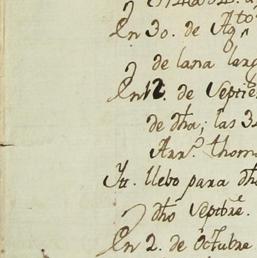 En 30. de Agto
de lana larg
En 12. de Septie
de dha; las 3
Anno. Thom
Yt. llebo para dh
dho Septbre.
En 2. de Octubre